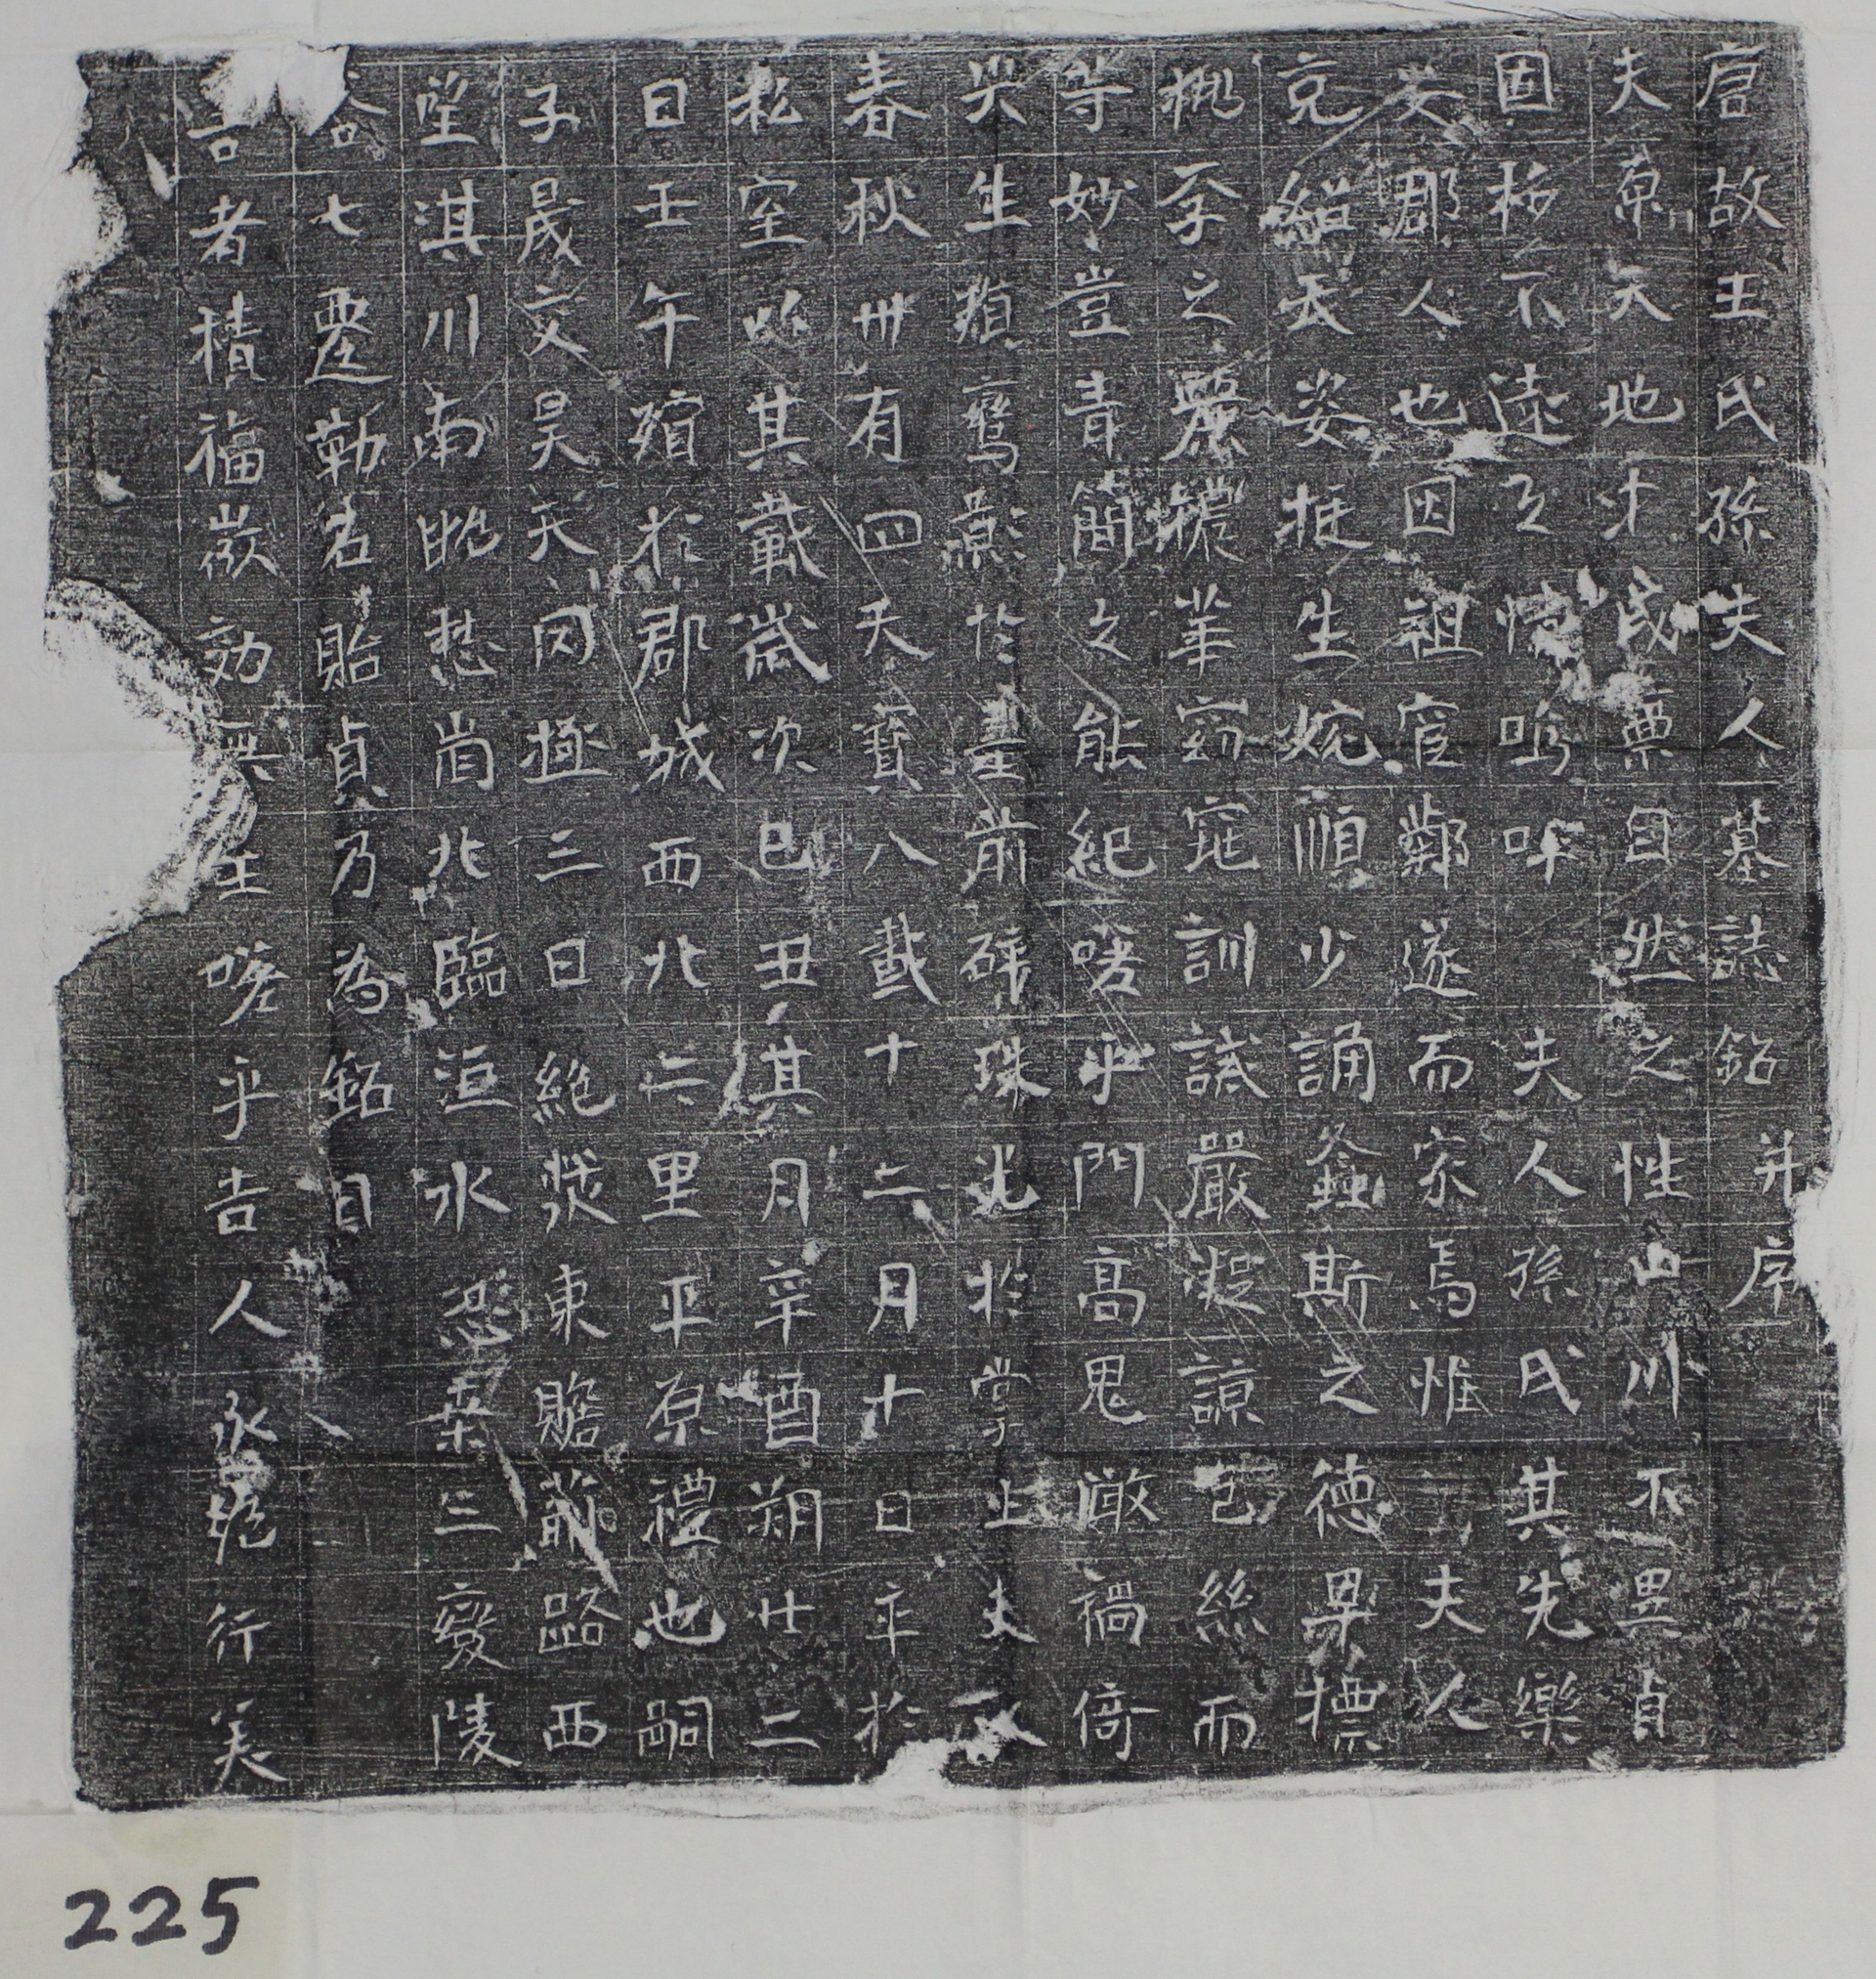 唐故王氏孫夫人墓誌銘并序
夫原天地才民稟自然之性山川不異貞
固柘不遠之悟嗚呼夫人孫氏其先樂
安郡人也因祖官鄴遂而家焉惟夫人
克紹天姿挺生婉順少誦螽斯之德畢標
桃李之麗穠華窈窕訓誡嚴凝諒苞絲而
等妙豈青簡之能紀嗟乎門高鬼瞰禍倚
災生殞鸞於臺前碎珠於掌上夫
春秋卌有四天寶八載十二月十日卒於
私室以其載歲次己丑其月辛酉朔廿二
日壬午殯於郡城西北六里平原禮也嗣
子晟文昊天罔極三日絕漿東瞻路西
望淇川南眺愁崗北臨洹水恐桑三變陵
谷七遷勒名貽貞乃為銘曰
言者積福效無王嗟乎吉人永行美
225